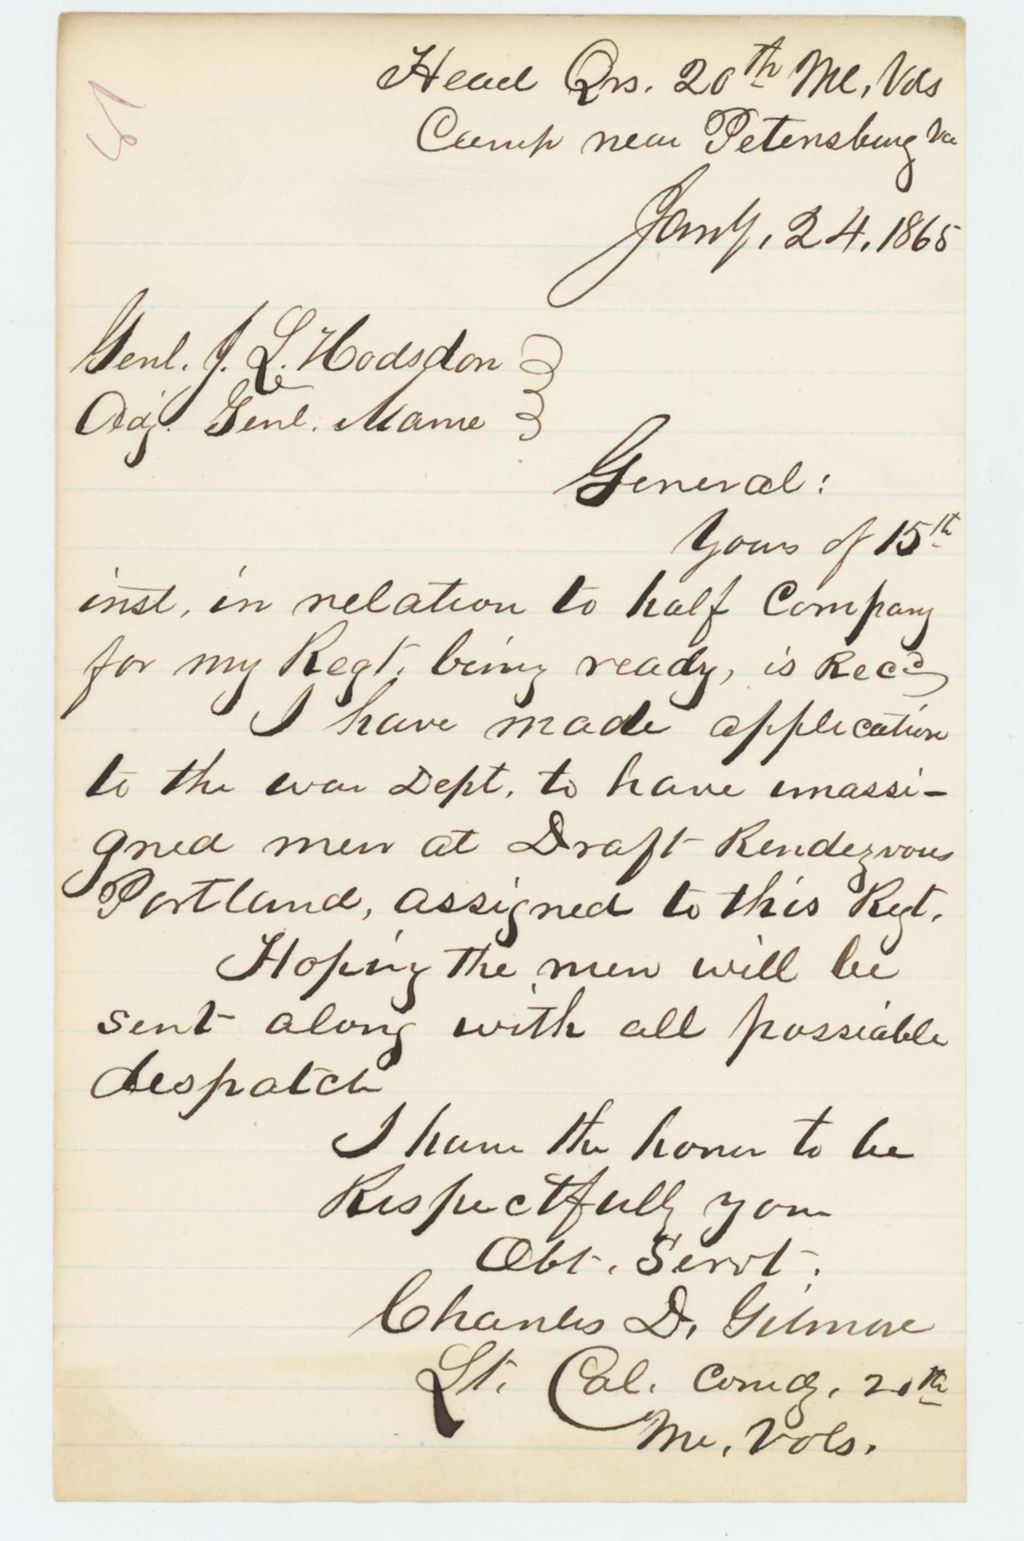 Head Qrs. 20th Me, Vols
Camp near Petersburg Va
Jany, 24, 1865
Genl. J. L. Hodsdon
Adj. Genl. Maine
General:
Yours of 15th
inst, in relation to half Company
for my Regt. being ready, is Recd
I have made application
to the war Dept. to have unassi-
gned men at Draft Rendezvous
Portland, assigned to this Regt.
Hoping the men will be
sent along with all possiable
despatch
I have the honor to be
Respectfully your
Obt. Servt.
Charles D. Gilmore
Lt. Col. Comdg. 20th
Me, Vols.